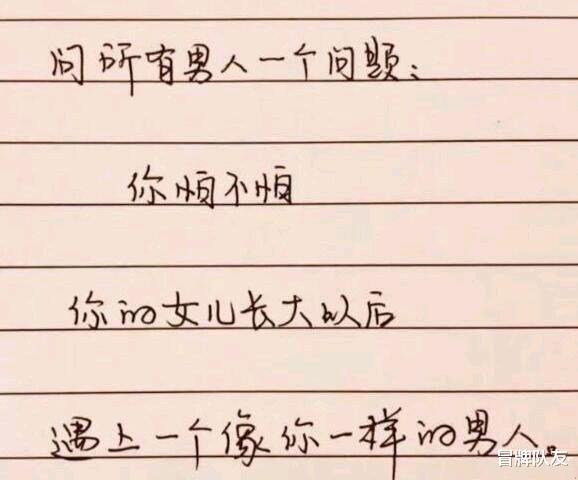 问所有男人一个问题：
你怕不怕
你的女儿长大以后
遇上一个像你一样的男人。
冒牌队友